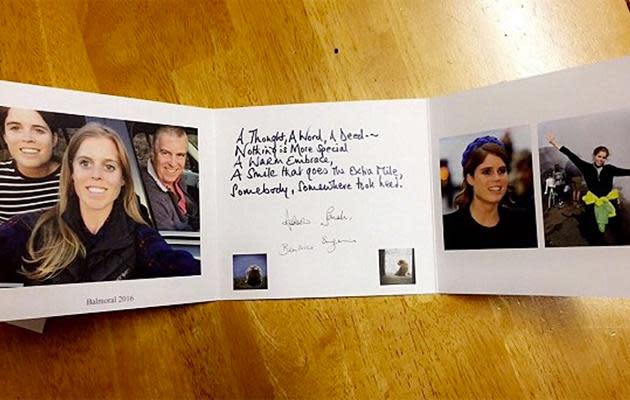 A Thought, A Word, A Deed~
Nothing is More Special
A Warm Embrace,
A Smile that goes the Extra Mile,
Somebody, Somewhere took heed.
Sarah.
Beatrice Eugenie
Balmoral 2016